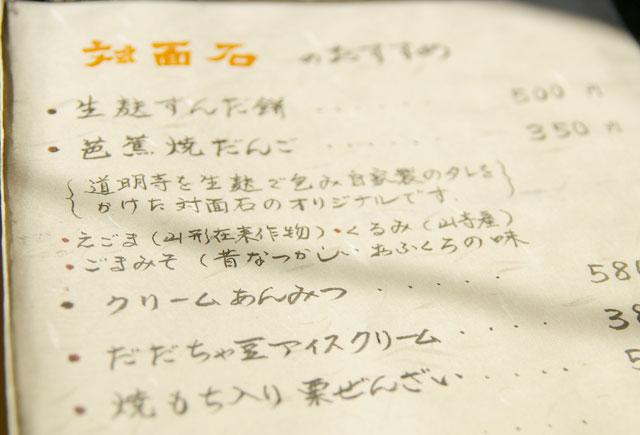 対面石 のおすすめ
・生麩ずんだ餅 ...... 500円
・芭蕉焼だんご ...... 350円
{道明寺を生麩で包み自家製のタレを
かけた対面石のオリジナルです.}
・えごま(山形在来作物)・くるみ(山寺産)
・ごまみそ(昔なつかしい おふくろの味
・クリームあんみつ ......
・だだちゃ豆アイスクリーム ....
・焼もち入り栗ぜんざい .....